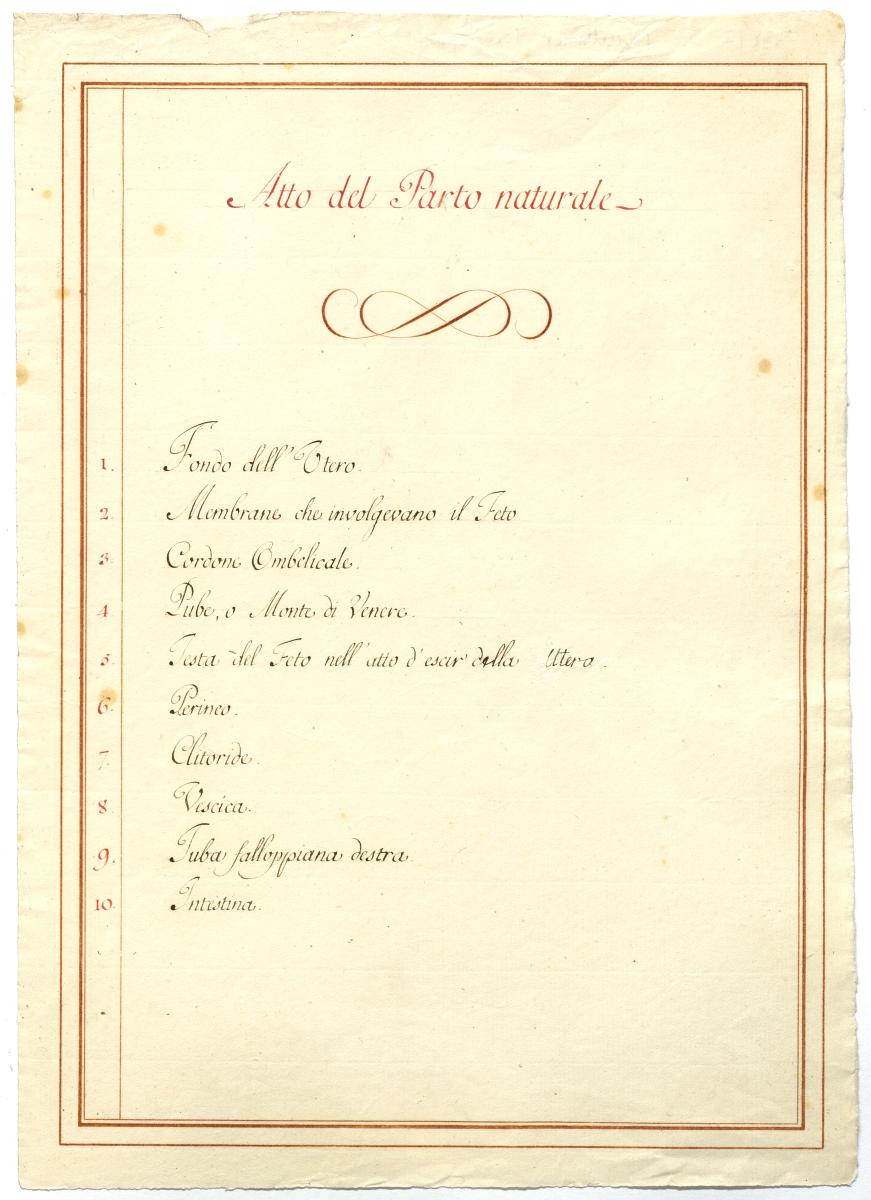 Atto del Parto naturale
1. Fondo dell'Utero.
2. Membrane che involgevano il Feto
3. Cordone Ombelicale.
4 Pube, o Monte di Venere.
5. Testa del Feto nell'atto d'escir della Utero.
6. Perineo.
7. Clitoride.
8. Vescica.
9. Tuba falloppiana destra.
10. Intestina.